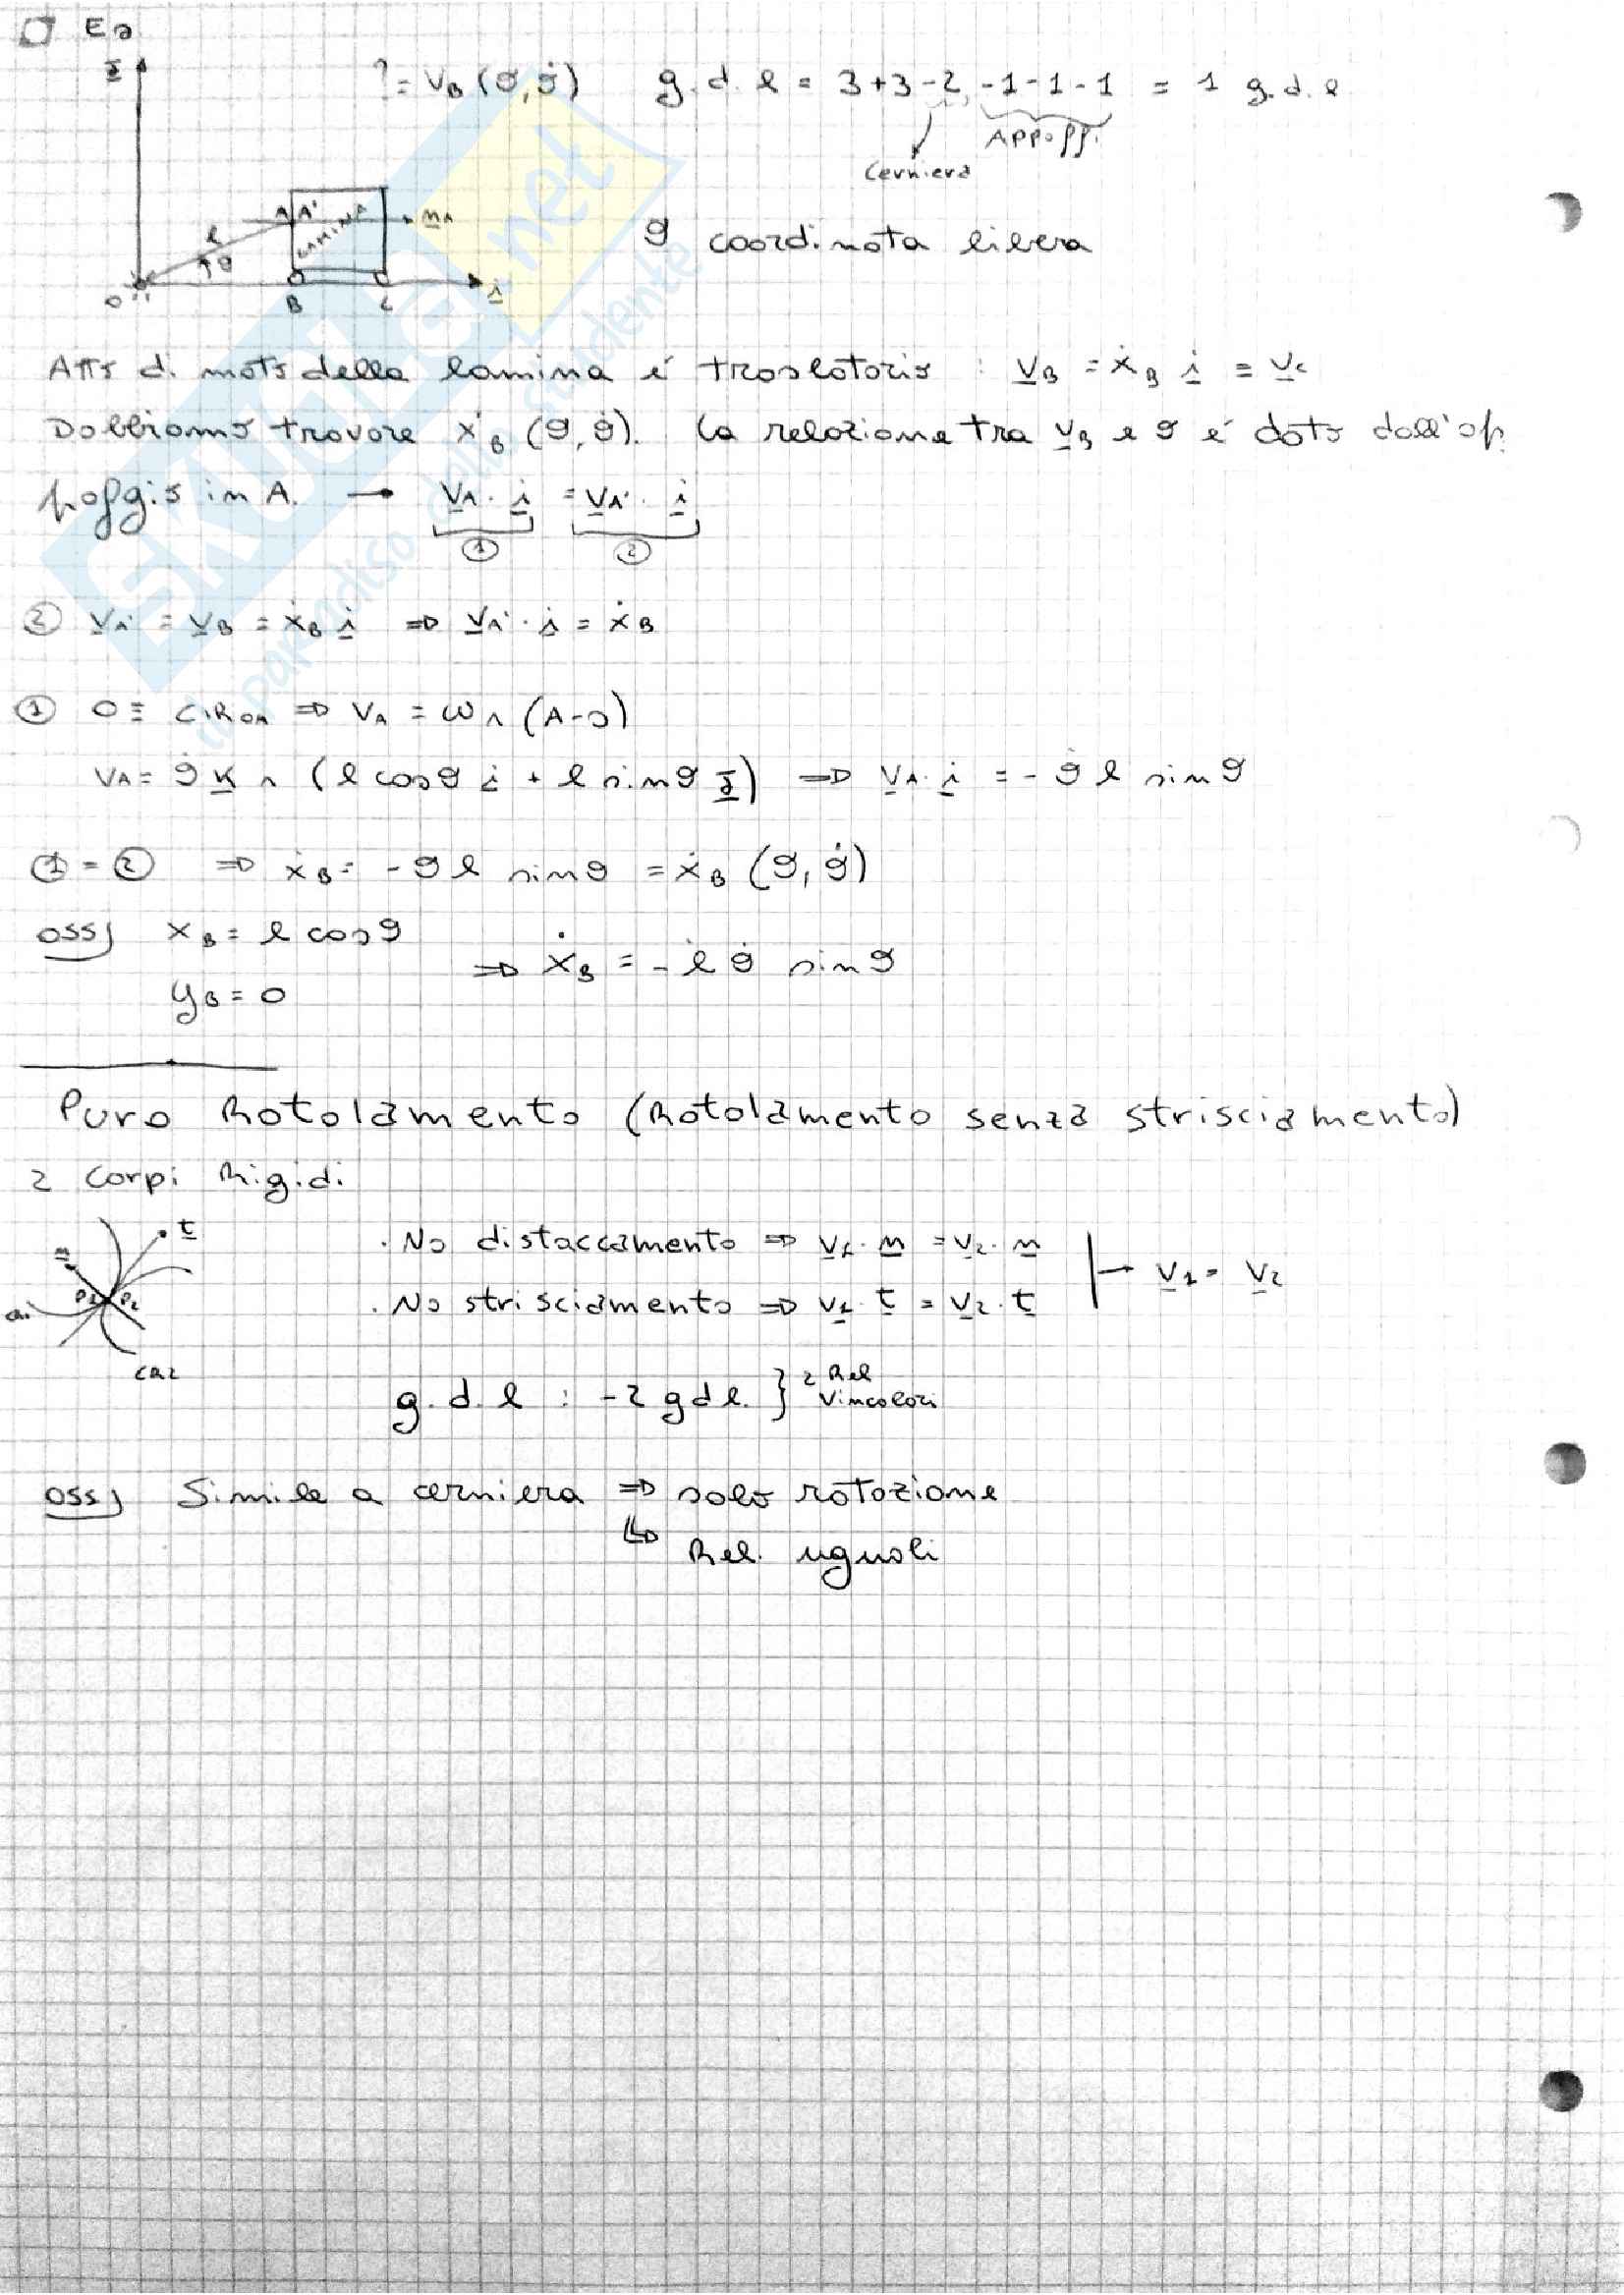 Es
j
? = v_B (ϑ, ϑ̇)    g.d.l = 3+3-2 -1-1-1 = 1 g.d.l
Appoggi
Cerniera
A A' LAMINA n_A
l
ϑ
O B C i
ϑ coordinata libera
Atto di moto della lamina é traslatorio : v_B = ẋ_B i = v_C
Dobbiamo trovare ẋ_B (ϑ, ϑ̇). La relazione tra v_B e ϑ é dato dall'ap
poggio in A. → v_A · i = v_A' · i
① ②
② v_A' = v_B = ẋ_B i ⇒ v_A' · i = ẋ_B
① O ≡ CIR_OA ⇒ v_A = ω ∧ (A-O)
v_A = ϑ̇ k ∧ (l cosϑ i + l sinϑ j) ⇒ v_A · i = - ϑ̇ l sinϑ
① = ② ⇒ ẋ_B = - ϑ̇ l sinϑ = ẋ_B (ϑ, ϑ̇)
oss) x_B = l cosϑ
⇒ ẋ_B = - l ϑ̇ sinϑ
y_B = 0
Puro Rotolamento (Rotolamento senza strisciamento)
2 Corpi Rigidi
n t
P1 P2
CR2
. No distaccamento ⇒ v_1 · n = v_2 · n
. No strisciamento ⇒ v_1 · t = v_2 · t
→ v_1 = v_2
g.d.l : -2 gdl. } 2 Rel Vincolari
oss) Simile a cerniera ⇒ solo rotazione
↳ Rel. uguali
SKUOLA.net
il paradiso dello studente